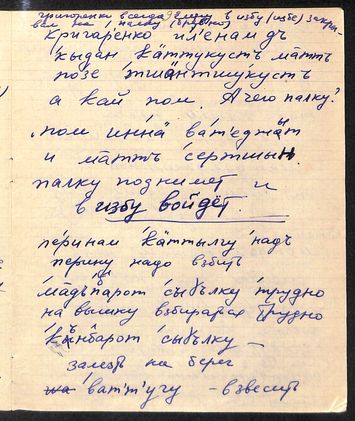 григоренки всегда двери в избу (избе) закры-
вали на палку (бревно)
кригаренко пл'енамдъ
'кыдан ка́ттукустъ ма̄ттъ
позе э́тшанти́шукустъ
а кай пом. А чего палку?
пом инна́ ва́т'еджа́т
и ма̄ттъ се́ртшын.
палку поднимет и
в избу войдёт.
пе́ринам ка́ттылгу надъ
перину надо взбить
ма́дъпарот сы́ъълку трудно
на вышку взбираться трудно
кы́нбарот сы́ъълку –
залезть на берег
ват'т'у́гу – взвесить